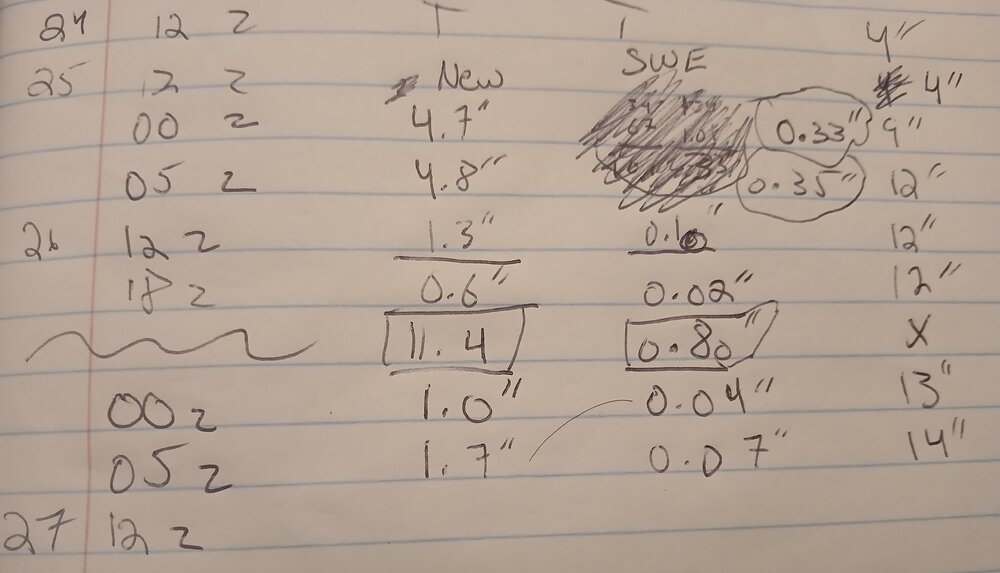 24 12 z T T 4"
25 12 z New SWE 4"
00 z 4.7" 0.33" 9"
05 z 4.8" 0.35" 12"
26 12 z 1.3" 0.10" 12"
18 z 0.6" 0.02" 12"
11.4 0.80" X
00 z 1.0" 0.04" 13"
05 z 1.7" 0.07" 14"
27 12 z